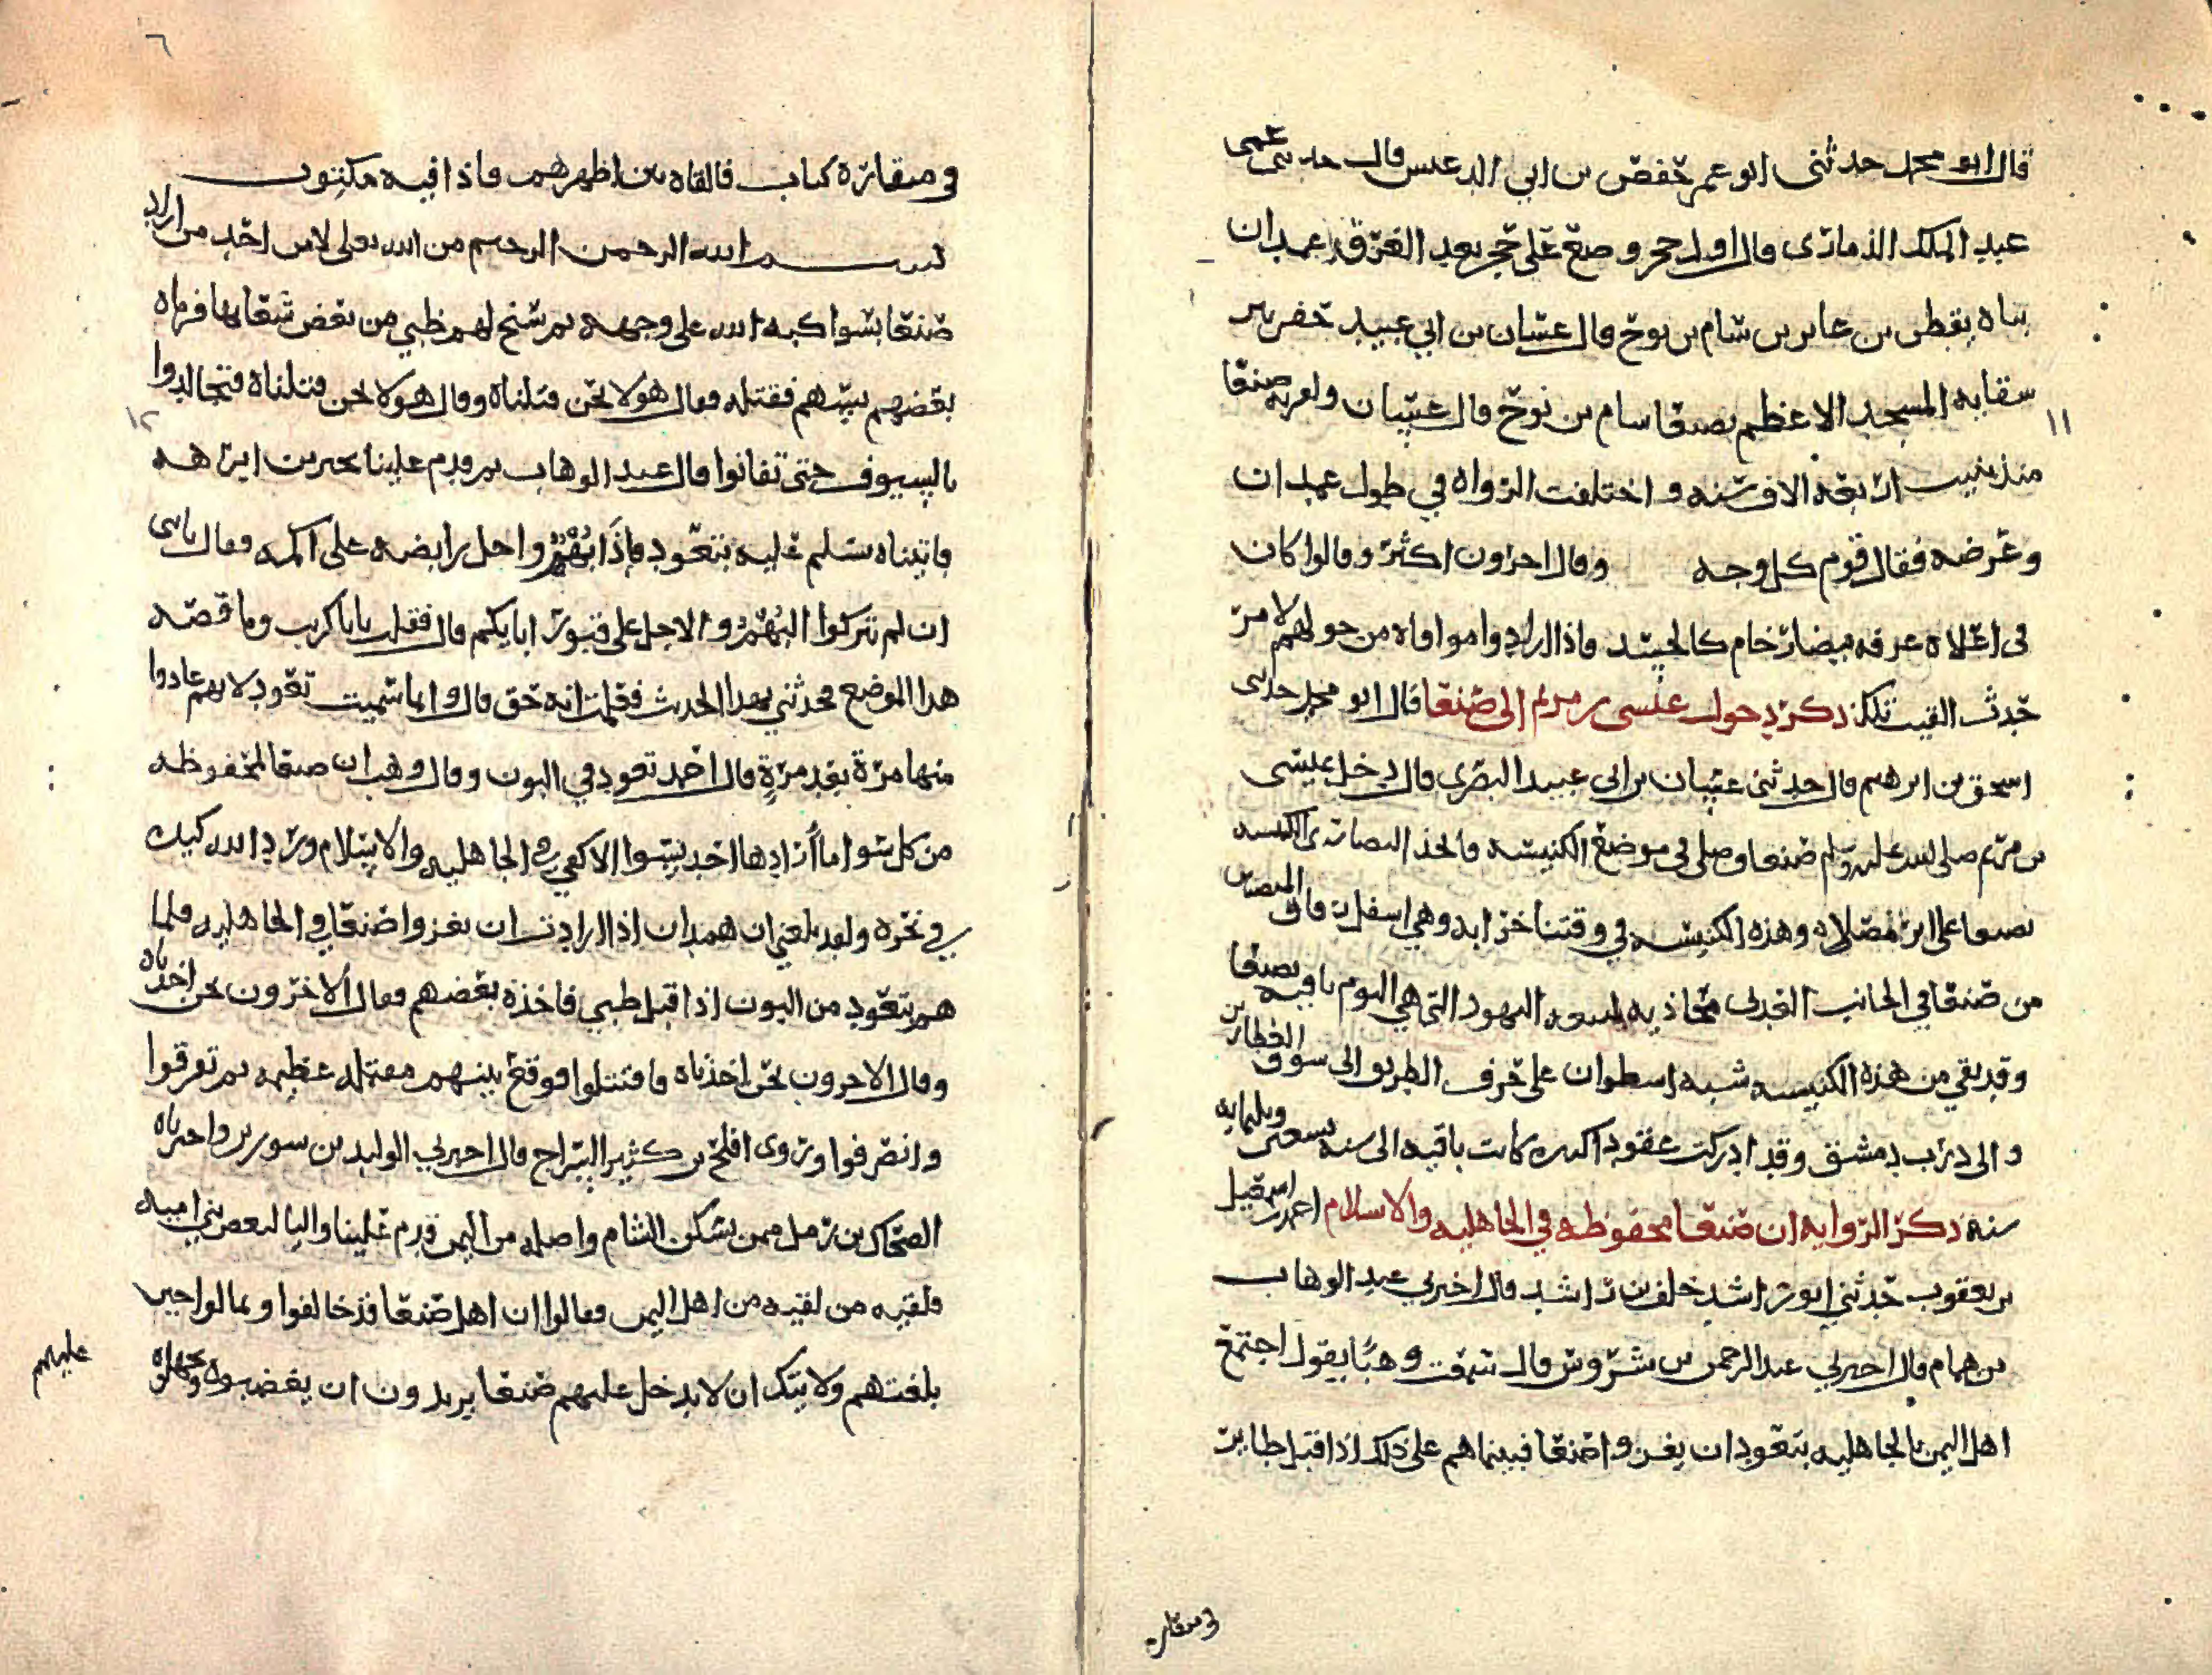 قال ابو محمد حدثنى ابو عمر حفص بن ابي الدعيس قال حدثنى عمى
عبد الملك الذمارى قال اول حجر وضع على حجر بعد الغرق غمدان
بناه يقطن بن عابر بن شام بن نوح قال عثمان بن ابي عبيد حفر بير
سقايه المسجد الاعظم بصنعا سام بن نوح قال عثمان ولعربه صنعا
منذ بنيت اربعه الاف سنه واختلفت الرواه في طول غمدان
وعرضه فقال قوم كل وجه وقال اخرون اكثر وقالوا كان
فى اعلاه غرفه بيضا رخام كالحيد واذا ارادوا موافاه من حولهم لامر
حدث القيت تلك ذكر دخول عيسى بن مريم الى صنعا قال ابو محمد حدثنى
اسحق بن ابرهيم قال حدثنى عثمان بن ابي عبيد البصرى قال دخل عيسى
بن مريم صلى الله عليه وسلم صنعا وصلى في موضع الكنيسه فاتخذ النصارى الكنيسه
بصنعا على اثر مصلاه وهذه الكنيسه في وقتنا خرابه وهي اسفل زقاق
من صنعا في الجانب العدنى محاذيه لبيعه اليهود التي هي اليوم باقيه بصنعا
وقد بقي من هذه الكنيسه شبه اسطوان على حرف الطريق الى سوق العطارين
والى درب دمشق وقد ادركت عقودا كثيره كانت باقيه الى سنه تسعين وثلثمايه
سنه ذكر الروايه ان صنعا محفوظه في الجاهليه والاسلام احمد بن اسمعيل
بن يعقوب حدثني ابو راشد خلف بن راشد قال اخبرني عبد الوهاب
بن همام قال اخبرني عبد الرحمن بن شروس قال سمعت وهبا يقول اجتمع
اهل اليمن بالجاهليه بتعود ان يغزوا صنعا فبيناهم على ذلك اذ اقبل طاير
في منقار
٦
في منقاره كتاب فالقاه بين اظهرهم فاذا فيه مكتوب
بسم الله الرحمن الرحيم من الله تعلى لاس احد من اراد
صنعا بسوا كبه الله على وجهه ثم سنح لهم ظبي من بعض شعابها فرماه
بعضهم بينهم فقتله فقال هولا نحن قتلناه وقال هولا نحن قتلناه فتجالدوا
بالسيوف حتى تفانوا قال عبد الوهاب ثم قدم علينا بحر بن ابرهه
فاتيناه نسلم عليه بتعود فاذا بقمر واجل رابضه على اكمه فقال
ان لم تتركوا البهم والاجل على قبور ابايكم قال فقلت يابا كرب وما قصه
هذا الموضع فحدثني بهذا الحدث فعلمت انه حق قال وانما سميت تعود لانهم عادوا
منها مرة بعد مرة قال احمد تعود في البون وقال وهب ان صنعا لمحفوظه
من كل سوا ما أرادها احد بسوا الا كفي في الجاهليه والاسلام ورد الله كيده
في نحره ولقد بلغني ان همدان اذ ارادت ان يغزوا صنعا في الجاهليه فلما
هم بتعود من البون اذ اقبل ظبي فاخذه بعضهم فقال الاخرون نحن اخذناه
وقال الاخرون نحن اخذناه فاقتتلوا فوقع بينهم مقتله عظيمه ثم تفرقوا
وانصرفوا وروى افلح بن كثير السراج قال اخبرني الوليد بن سوربر واخبرناه
الضحاك بن زمل ممن يسكن الشام واصله من اليمن قدم علينا واليا لبعض بني اميه
فلقيه من لقيه من اهل اليمن فقالوا ان اهل صنعا قد خالفوا وتمالوا حين
بلغتهم ولايتك ان لا يدخل عليهم صنعا يريدون ان يغضبوه
عليهم
١١
١٢